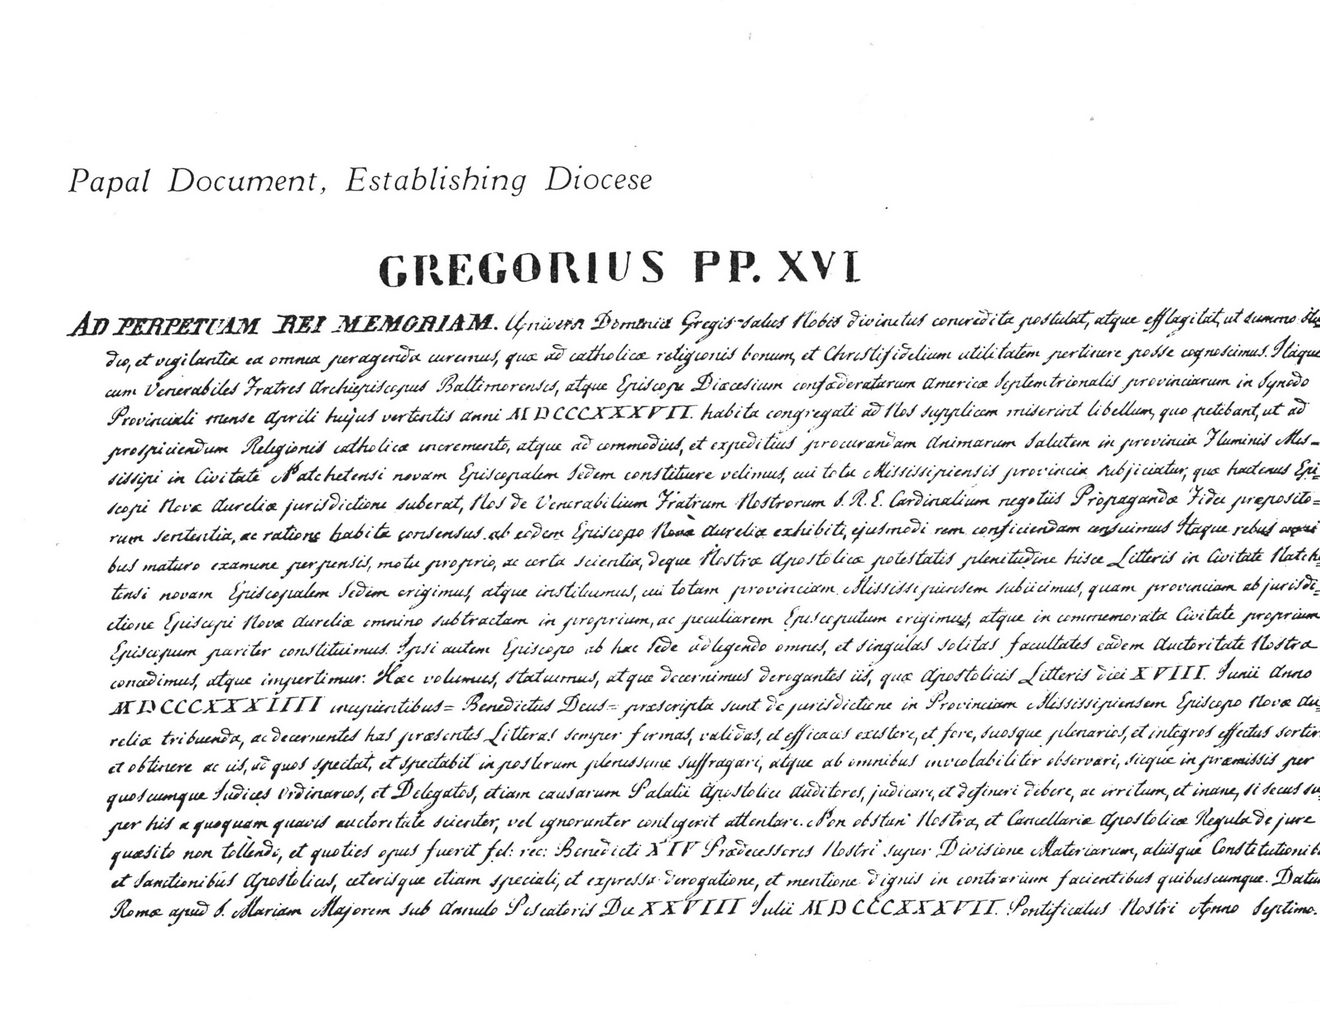 Papal Document, Establishing Diocese
GREGORIUS PP. XVI
AD PERPETUAM REI MEMORIAM. Universi Dominici Gregis salus Nobis divinitus concredita postulat, atque efflagitat, ut summo stu
dio, et vigilantia ea omnia peragenda curemus, quæ ad catholicæ religionis bonum, et Christifidelium utilitatem pertinere posse cognoscimus. Itaque
cum Venerabiles Fratres Archiepiscopus Baltimorensis, atque Episcopi Diœcesium confœderatarum Americæ Septemtrionalis provinciarum in Synodo
Provinciali mense Aprili hujus vertentis anni MDCCCXXXVII. habita congregati ad Nos supplicem miserint libellum, quo petebant, ut ad
prospiciendum Religionis catholicæ incremento, atque ad commodius, et expeditius procurandam Animarum Salutem in provincia Fluminis Mis-
sissipi in Civitate Natchetensi novam Episcopalem Sedem constituere velimus, cui tota Mississipiensis provincia subjiciatur, quæ hactenus Epi=
scopi Novæ Aureliæ jurisdictioni suberat, Nos de Venerabilium Fratrum Nostrorum S. R. E. Cardinalium negotiis Propagandæ Fidei præposito=
rum sententia, ac ratione habita consensus ab eodem Episcopo Novæ Aureliæ exhibiti, ejusmodi rem conficiendam censuimus Itaque rebus
bus maturo examine perpensis, motu proprio, ac certa scientia, deque Nostræ Apostolicæ potestatis plenitudine hisce Litteris in Civitate Natch=
tensi novam Episcopalem Sedem erigimus, atque instituimus, cui totam provinciam Mississipiensem subiicimus, quam provinciam ab jurisdi=
ctione Episcopi Novæ Aureliæ omnino subtractam in proprium, ac peculiarem Episcopatum erigimus, atque in commemorata Civitate proprium
Episcopum pariter constituimus. Ipsi autem Episcopo ab hac Sede adlegendo omnes, et singulas solitas facultates eadem Auctoritate Nostra
concedimus, atque impertimur. Hæc volumus, statuimus, atque decernimus derogantes iis, quæ Apostolicis Litteris diei XVIII. Iunii Anno
MDCCCXXXIIII incipientibus= Benedictus Deus= præscripta sunt de jurisdictione in Provinciam Mississipiensem Episcopo Novæ Au=
reliæ tribuenda, ac decernentes has præsentes Litteras semper firmas, validas, et efficaces existere, et fore, suosque plenarios, et integros effectus sortir
et obtinere ac iis, ad quos spectat, et spectabit in posterum plenissime suffragari, atque ab omnibus inviolabiliter observari, sicque in præmissis per
quoscumque Iudices Ordinarios, et Delegatos, etiam causarum Palatii Apostolici Auditores, judicari, et definiri debere, ac irritum, et inane, si secus su
per his a quoquam quavis auctoritate scienter, vel ignoranter contigerit attentari. Non obstan: Nostra, et Cancellariæ Apostolicæ Regula de jure
quæsito non tollendo, et quoties opus fuerit fel: rec: Benedicti XIV Prædecessoris Nostri super Divisione Materiarum, aliisque Constitutionib
et Sanctionibus Apostolicis, ceterisque etiam speciali, et expressa derogatione, et mentione dignis in contrarium facientibus quibuscumque. Datu
Romæ apud S. Mariam Majorem sub Annulo Piscatoris Die XXVIII Iulii MDCCCXXXVII. Pontificatus Nostri Anno Septimo.